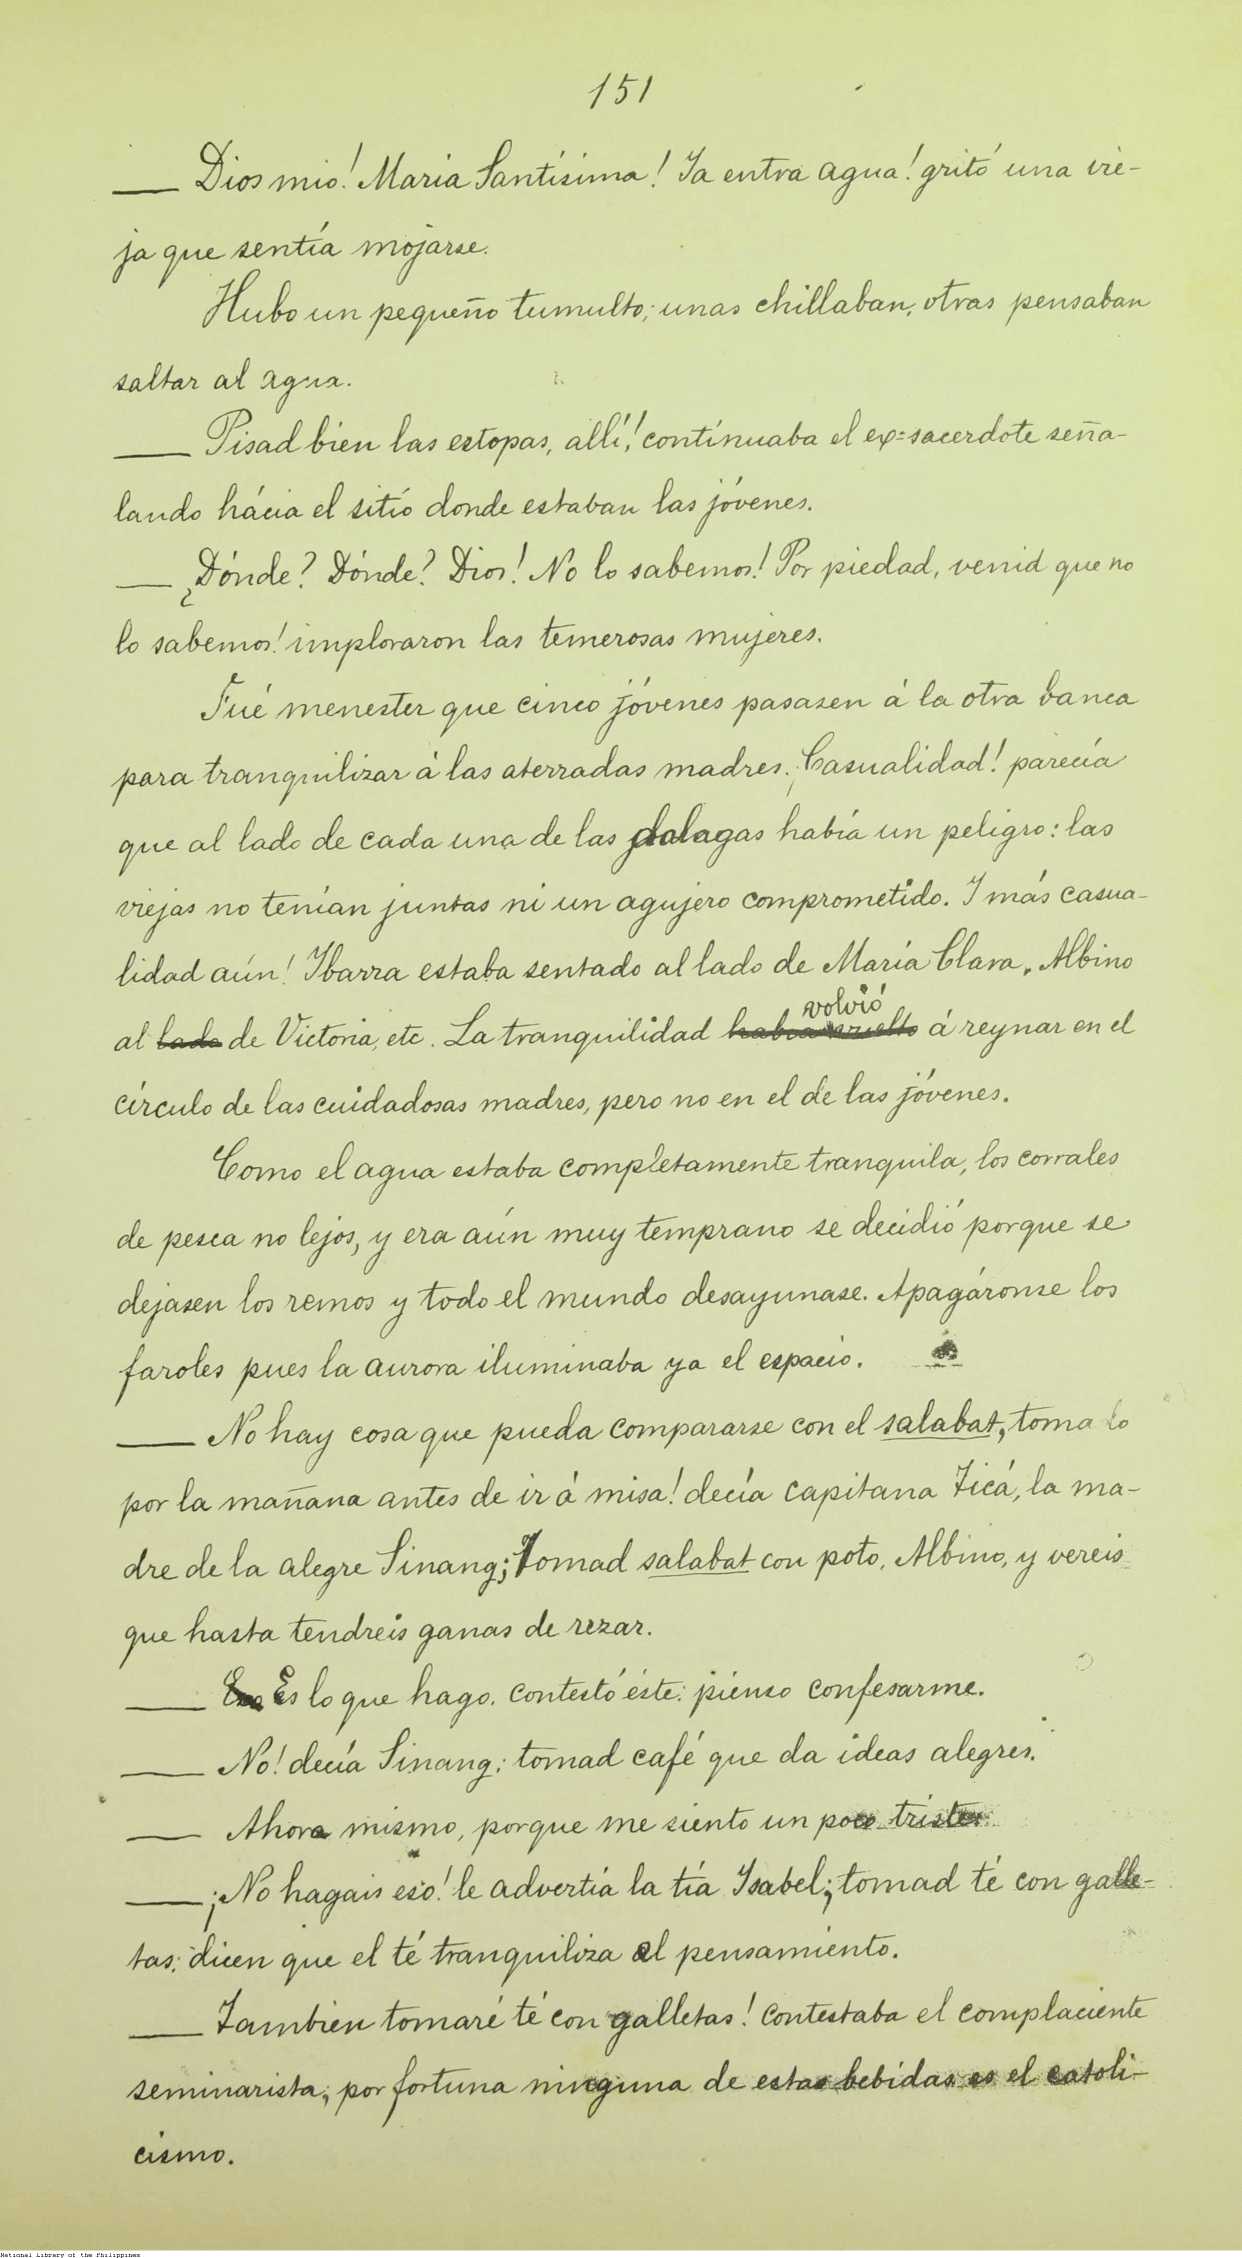 151
— Dios mio! Maria Santísima! Ya entra agua! gritó una vie-
ja que sentía mojarse.
Hubo un pequeño tumulto; unas chillaban, otras pensaban
saltar al agua.
— Pisad bien las estopas, allí! continuaba el ex=sacerdote seña-
lando hácia el sitio donde estaban las jóvenes.
— ¿Dónde? Dónde? Dios! No lo sabemos! Por piedad, venid que no
lo sabemos! imploraron las temerosas mujeres.
Fué menester que cinco jóvenes pasasen á la otra banca
para tranquilizar á las aterradas madres. ¡Casualidad! parecía
que al lado de cada una de las dalagas había un peligro: las
viejas no tenían juntas ni un agujero comprometido. Y más casua-
lidad aún! Ibarra estaba sentado al lado de María Clara, Albino
volvió
al lado de Victoria, etc. La tranquilidad había vuelto á reynar en el
círculo de las cuidadosas madres, pero no en el de las jóvenes.
Como el agua estaba completamente tranquila, los corrales
de pesca no lejos, y era aún muy temprano se decidió porque se
dejasen los remos y todo el mundo desayunase. Apagáronse los
faroles pues la aurora iluminaba ya el espacio.
— No hay cosa que pueda compararse con el salabat, toma lo
por la mañana antes de ir á misa! decía capitana Ticá, la ma-
dre de la alegre Sinang; Tomad salabat con poto, Albino, y vereis
que hasta tendreis ganas de rezar.
— Eso Es lo que hago. contestó éste: pienso confesarme.
— No! decía Sinang; tomad café que da ideas alegres.
— Ahora mismo, porque me siento un poco triste.
— ¡No hagais eso! le advertía la tía Isabel; tomad té con galle-
tas: dicen que el té tranquiliza el pensamiento.
— Tambien tomaré té con galletas! contestaba el complaciente
seminarista, por fortuna ninguna de estas bebidas es el catoli-
cismo.
National Library of the Philippines